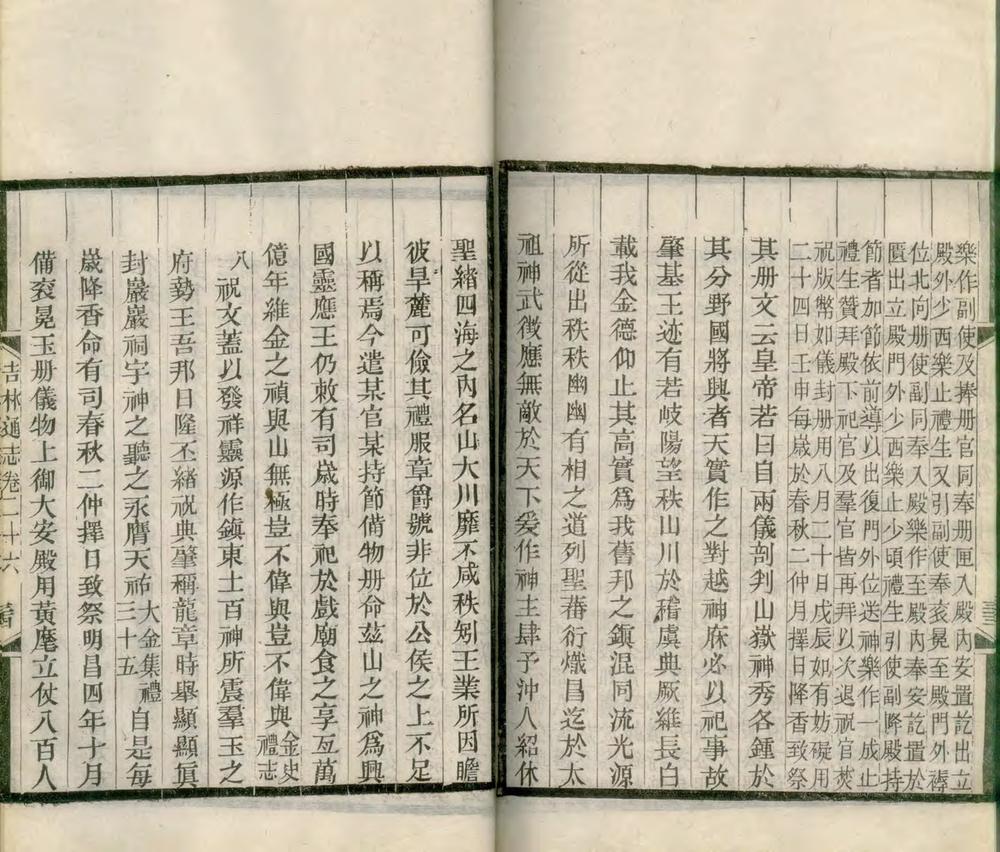 樂作副使及捧册官同奉册匣入殿內安置訖出立
殿外少西樂止禮生又引副使奉衮冕至殿門外褥
位北向册使副同奉入殿樂作至殿內奉安訖置於
匱出立殿門外少西樂止少頃禮生引使副降殿持
節者加節依前導以出復門外位送神樂作一成止
禮生贊拜殿下祀官及羣官皆再拜以次退祝官焚
祝版幣如儀封册用八月二十日戊辰如有妨礙用
二十四日壬申每歲於春秋二仲月擇日降香致祭
其册文云皇帝若曰自兩儀剖判山嶽神秀各鍾於
其分野國將興者天實作之對越神庥必以祀事故
肇基王迹有若岐陽望秩山川於稽虞典厥維長白
載我金德仰止其高實爲我舊邦之鎮混同流光源
所從出秩秩幽幽有相之道列聖蕃衍熾昌迄於太
祖神武徵應無敵於天下爰作神主肆予沖人紹休
聖緒四海之內名山大川靡不咸秩矧王業所因瞻
彼旱麓可儉其禮服章爵號非位於公侯之上不足
以稱焉今遣某官某持節備物册命茲山之神爲興
國靈應王仍敕有司歲時奉祀於戲廟食之享亙萬
億年維金之禎與山無極豈不偉與豈不偉與金史
禮志
八
祝文蓋以發祥靈源作鎮東土百神所震羣玉之
府勢王吾邦日隆丕緒祝典肇稱龍章時舉顯顯眞
封巖巖祠宇神之聽之永膺天祐大金集禮
三十五自是每
歲降香命有司春秋二仲擇日致祭明昌四年十月
備衮冕玉册儀物上御大安殿用黃麾立仗八百人
吉林通志卷二十六